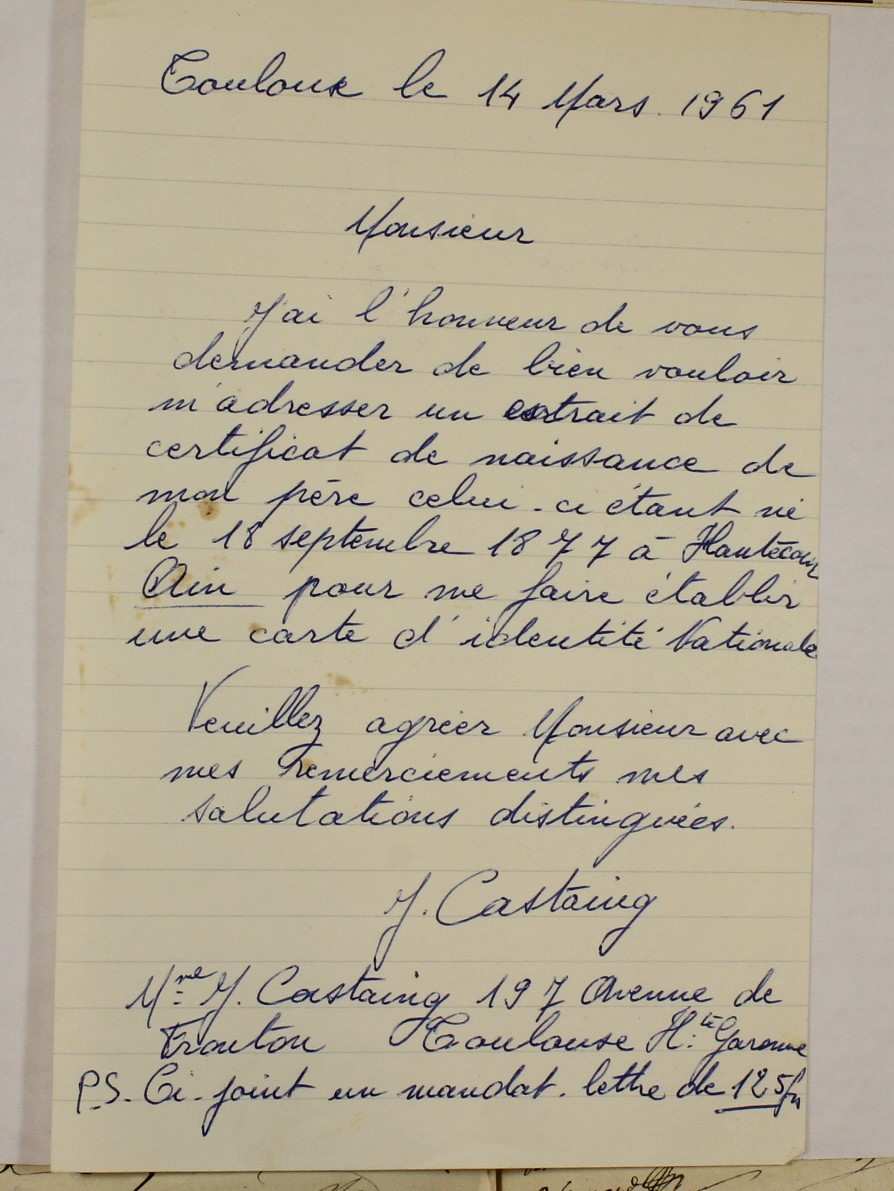 Toulouse le 14 Mars. 1961
Monsieur
J'ai l'honneur de vous
demander de bien vouloir
m'adresser un extrait de
certificat de naissance de
mon père celui-ci étant né
le 18 septembre 1877 à Hautecour
Ain pour me faire établir
une carte d'identité Nationale
Veuillez agréer Monsieur avec
mes remerciements mes
salutations distinguées.
J. Castaing
Mme J. Castaing 197 Avenue de
Fronton Toulouse Hte Garonne
P.S. Ci-joint un mandat-lettre de